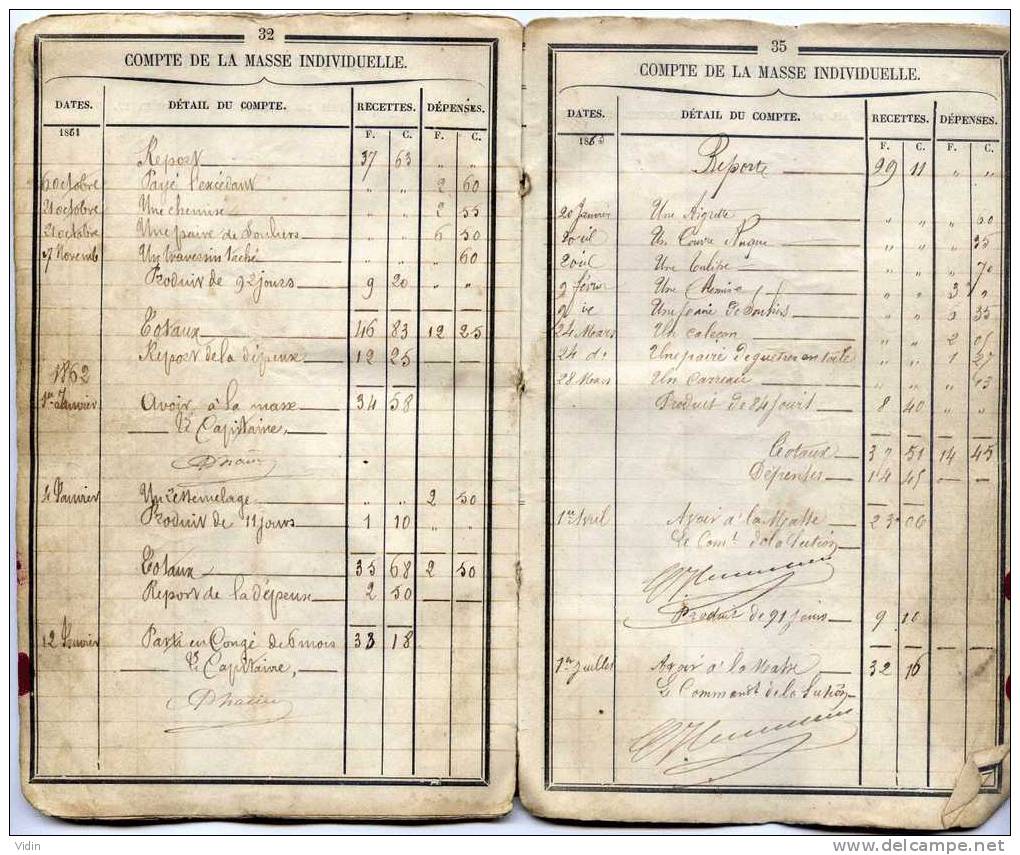 32
COMPTE DE LA MASSE INDIVIDUELLE.
DATES. DÉTAIL DU COMPTE. RECETTES. DÉPENSES.
1861 F. C. F. C.
Report 37 63 " "
6 octobre Payé l'excédant " " 2 60
21 octobre Une chemise " " 2 55
21 octobre Une paire de Souliers " " 6 50
27 Novemb Un travessin taché " " " 60
Produit de 92 jours 9 20 " "
Totaux 46 83 12 25
Report de la dépense 12 25
1862
1er Janvier Avoir à la masse 34 58
Le Capitaine,
4 Janvier Un ressemelage " " 2 50
Produit de 11 jours 1 10 " "
Totaux 35 68 2 50
Report de la dépense 2 50
12 Janvier Parti en Congé de 6 mois 33 18
Le Capitaine,
35
COMPTE DE LA MASSE INDIVIDUELLE.
DATES. DÉTAIL DU COMPTE. RECETTES. DÉPENSES.
1863 F. C. F. C.
Reporte 29 11 " "
20 Janvier Une " " " 60
Un Couvre Nuque " " " 35
Une " " " 70
9 févrie Une Chemise " " 3 "
Une paire de Souliers " " 6 35
24 Mars Un caleçon " " 2 05
24 do Une paire de guêtres en toile " " 1 27
28 Mars Un Carreau " " " 13
Produit de 84 jours 8 40 " "
Totaux 37 51 14 45
Dépenses 14 45
1er Avril Avoir à la Masse 23 06
Le Comt de la Section
Produit de 91 jours 9 10
1er Juillet Avoir à la Masse 32 16
Le Commant de la Section
Vidin
www.delcampe.net